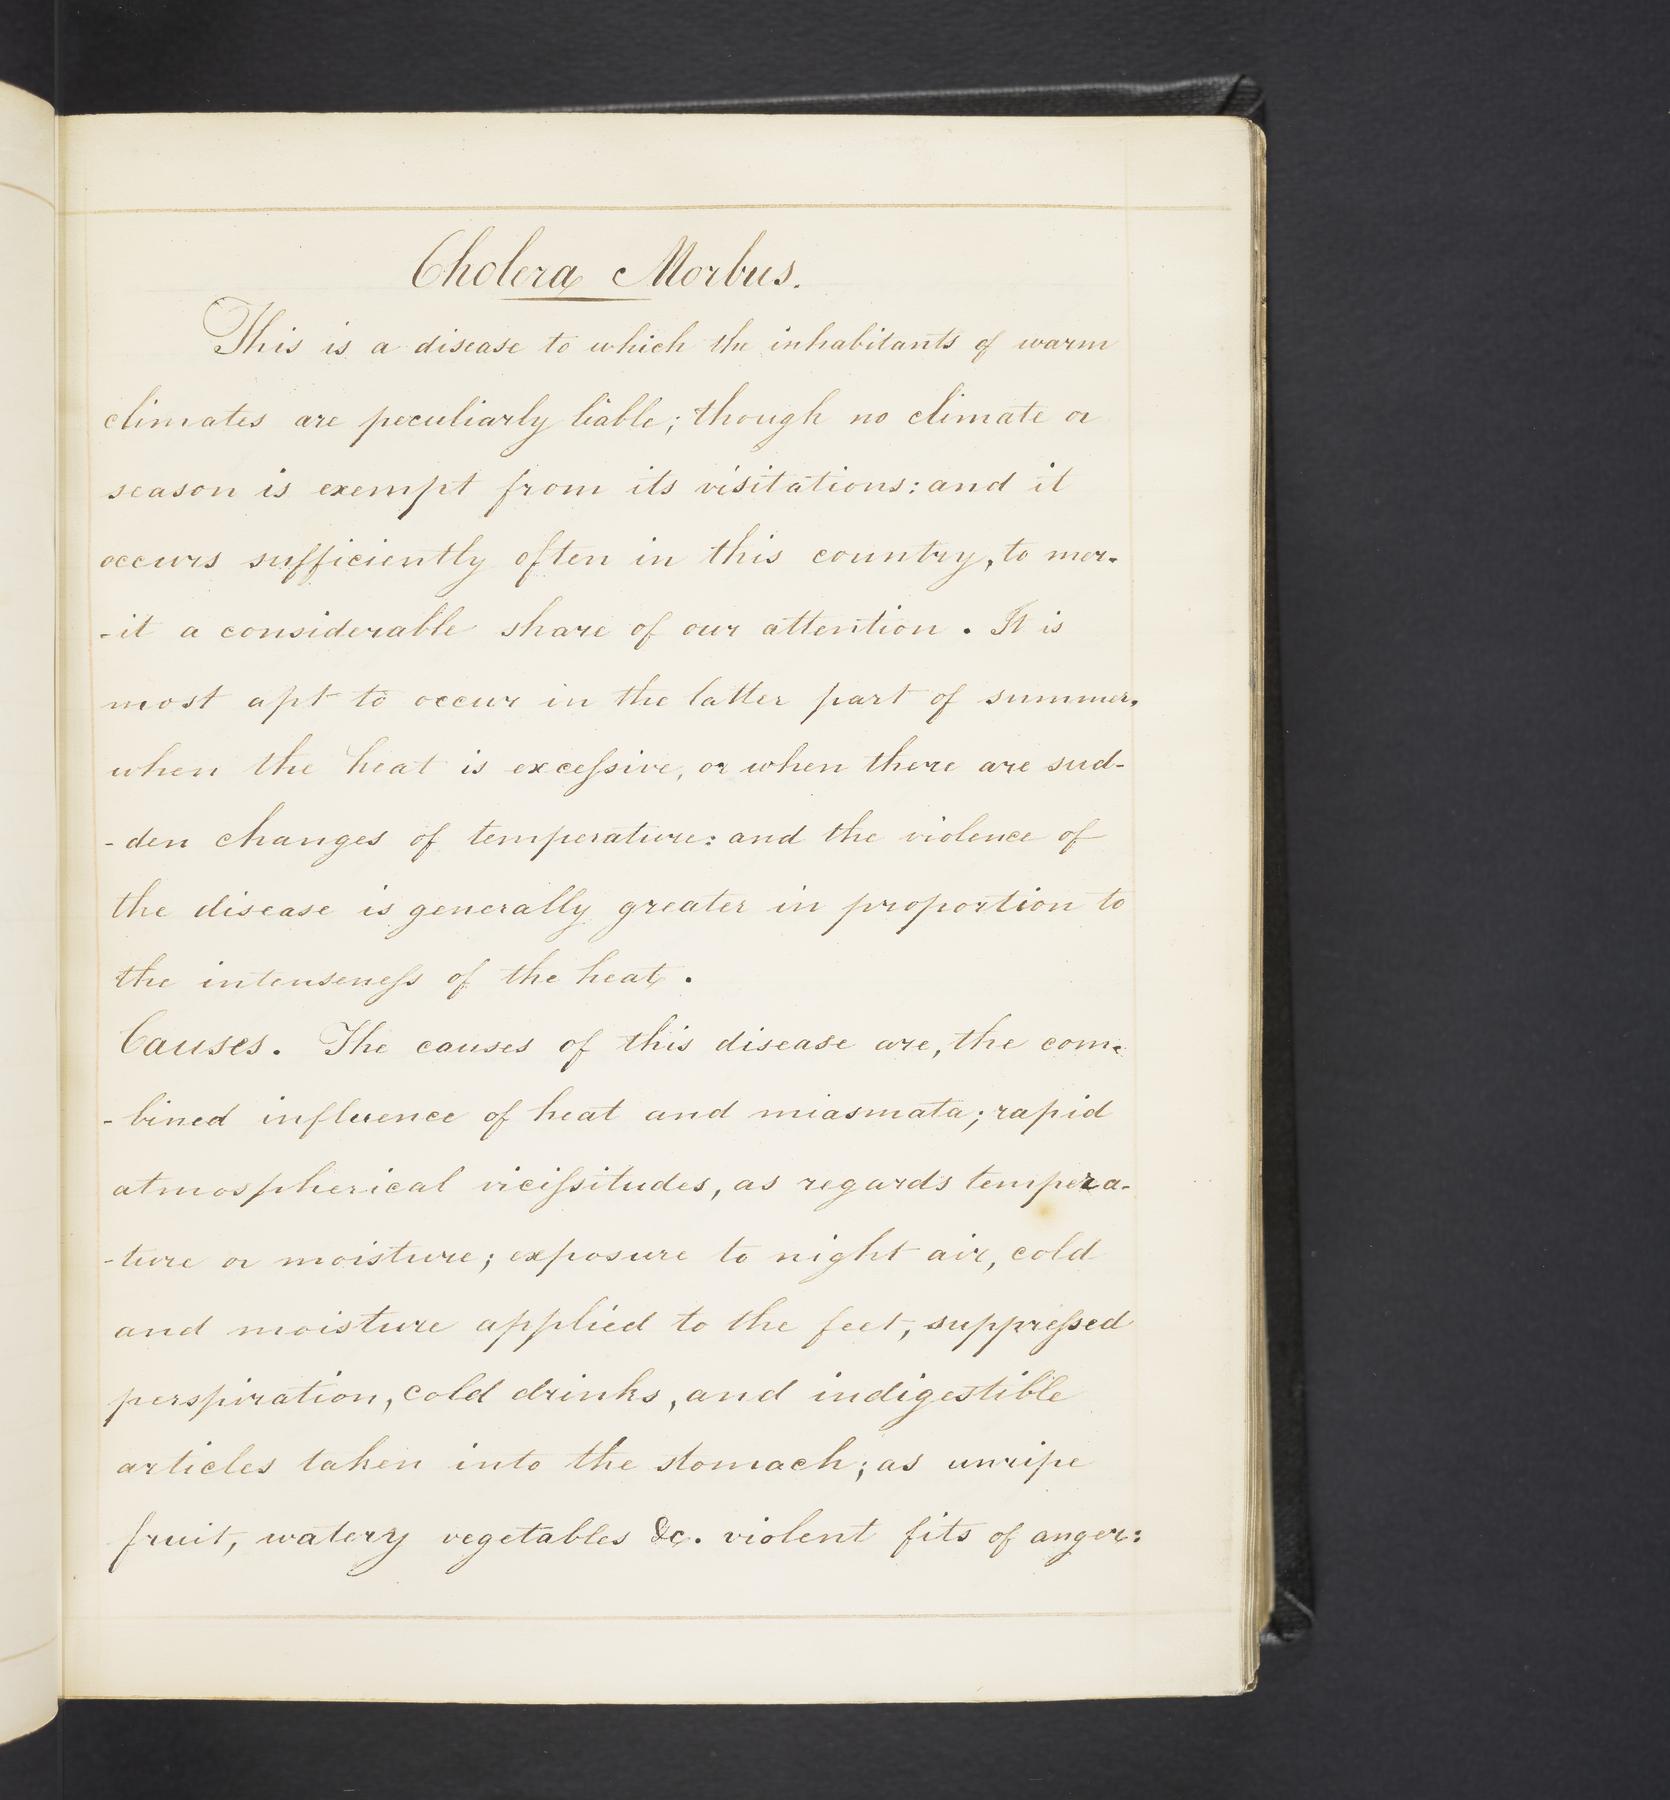 Cholera Morbus.
This is a disease to which the inhabitants of warm
climates are peculiarly liable; though no climate or
season is exempt from its visitations: and it
occurs sufficiently often in this country, to mer-
-it a considerable share of our attention. It is
most apt to occur in the latter part of summer,
when the heat is exceſsive, or when there are sud-
-den changes of temperature: and the violence of
the disease is generally greater in proportion to
the intenseneſs of the heat.
Causes. The causes of this disease are, the com-
-bined influence of heat and miasmata; rapid
atmospherical viciſsitudes, as regards tempera-
-ture or moisture; exposure to night air, cold
and moisture applied to the feet, suppreſsed
perspiration, cold drinks, and indigestible
articles taken into the stomach; as unripe
fruit, watery vegetables &c. violent fits of anger: